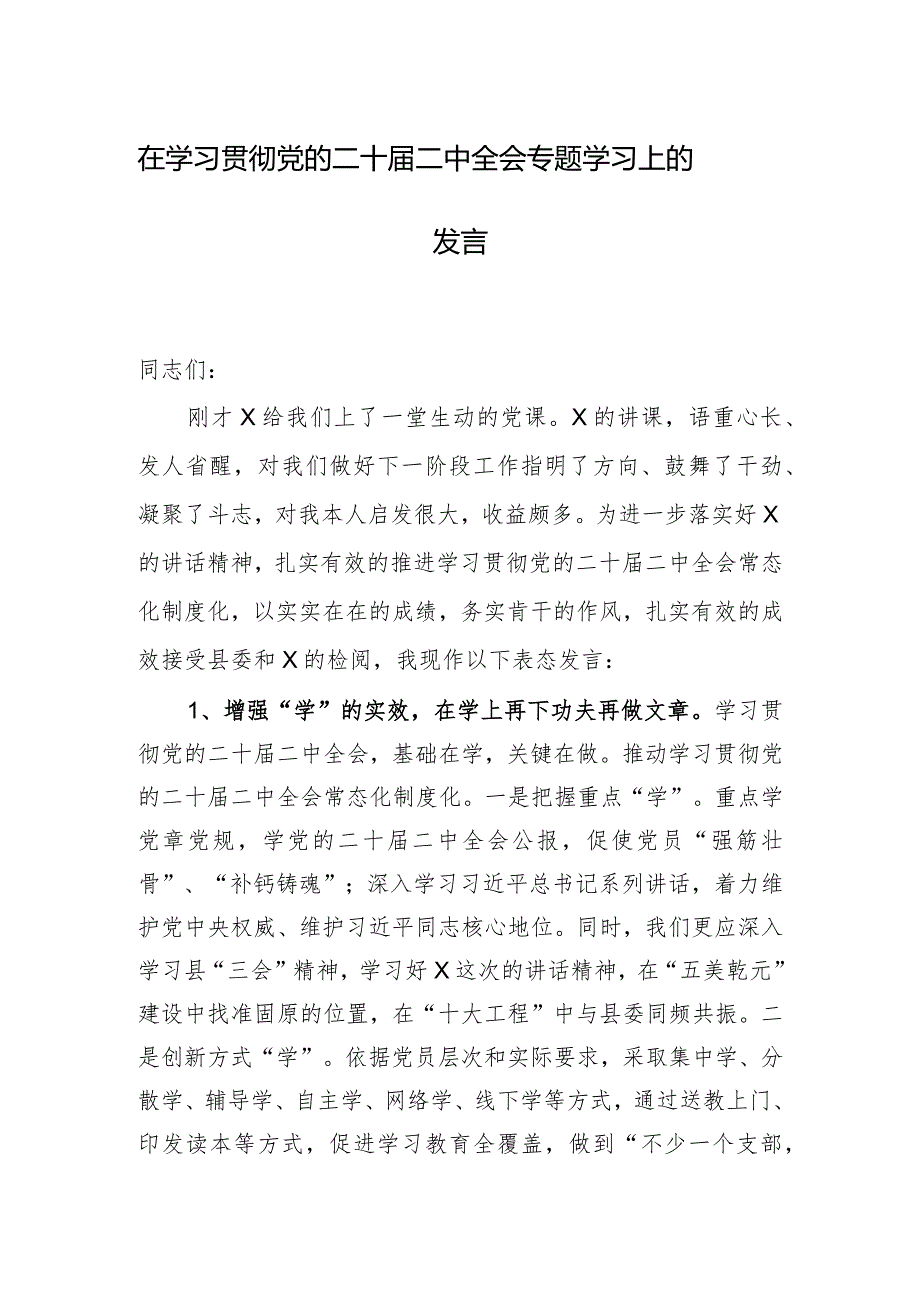 在学习贯彻党的二十届二中全会专题学习上的
发言
同志们：
刚才X给我们上了一堂生动的党课。X的讲课，语重心长、
发人省醒，对我们做好下一阶段工作指明了方向、鼓舞了干劲、
凝聚了斗志，对我本人启发很大，收益颇多。为进一步落实好X
的讲话精神，扎实有效的推进学习贯彻党的二十届二中全会常态
化制度化，以实实在在的成绩，务实肯干的作风，扎实有效的成
效接受县委和X的检阅，我现作以下表态发言：
1、增强“学”的实效，在学上再下功夫再做文章。学习贯
彻党的二十届二中全会，基础在学，关键在做。推动学习贯彻党
的二十届二中全会常态化制度化。一是把握重点“学”。重点学
党章党规，学党的二十届二中全会公报，促使党员“强筋壮
骨”、“补钙铸魂”；深入学习习近平总书记系列讲话，着力维
护党中央权威、维护习近平同志核心地位。同时，我们更应深入
学习县“三会”精神，学习好X这次的讲话精神，在“五美乾元”
建设中找准固原的位置，在“十大工程”中与县委同频共振。二
是创新方式“学”。依据党员层次和实际要求，采取集中学、分
散学、辅导学、自主学、网络学、线下学等方式，通过送教上门、
印发读本等方式，促进学习教育全覆盖，做到“不少一个支部，